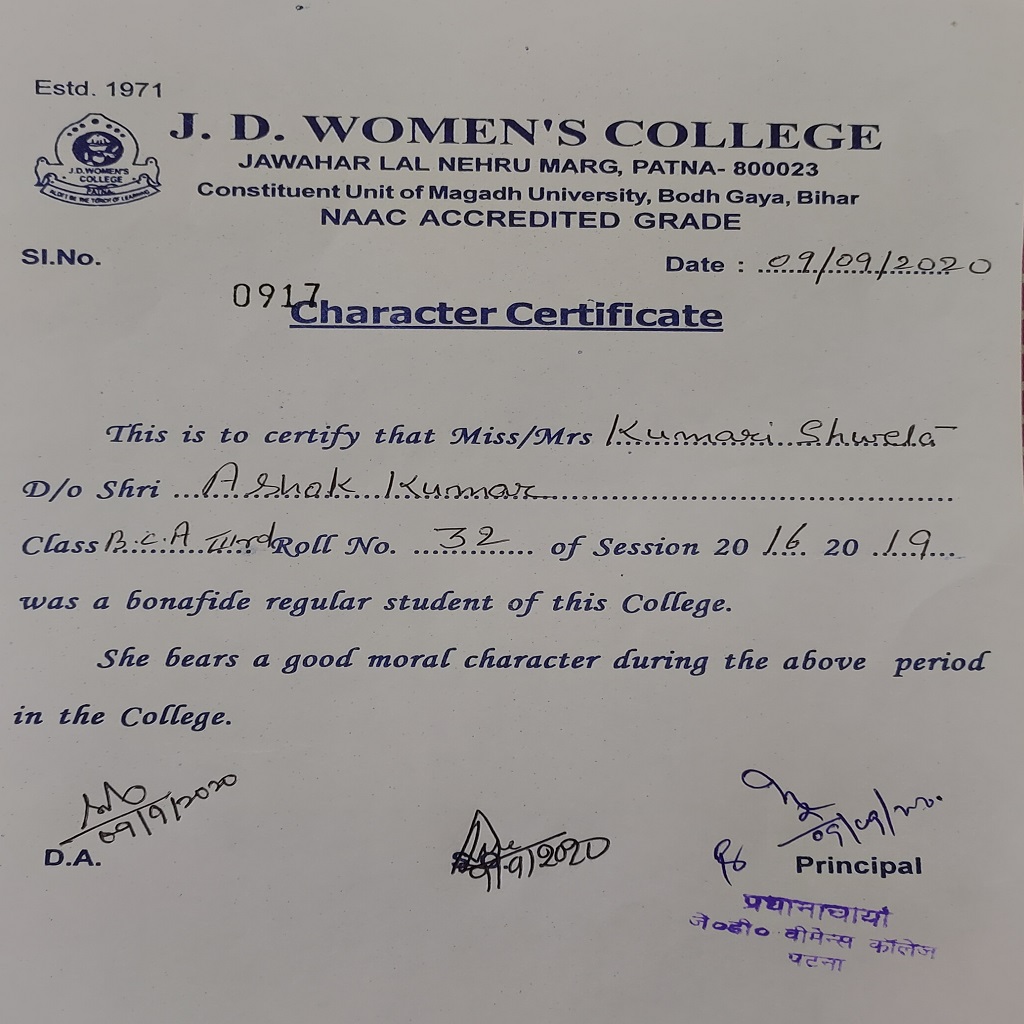 Estd. 1971
J. D. WOMEN'S COLLEGE
JAWAHAR LAL NEHRU MARG, PATNA- 800023
Constituent Unit of Magadh University, Bodh Gaya, Bihar
NAAC ACCREDITED GRADE
J.D.WOMEN'S
COLLEGE
PATNA
SI.No.
Date : 09/09/2020
0917
Character Certificate
This is to certify that Miss/Mrs Kumari Shweta
D/o Shri Ashok Kumar
Class B.C.A IIIrd Roll No. 32 of Session 20 16 20 19
was a bonafide regular student of this College.
She bears a good moral character during the above period
in the College.
09/9/2020
D.A.
9/9/2020
09/09/20.
Principal
प्रधानाचार्या
जे०डी० वीमेन्स कॉलेज
पटना